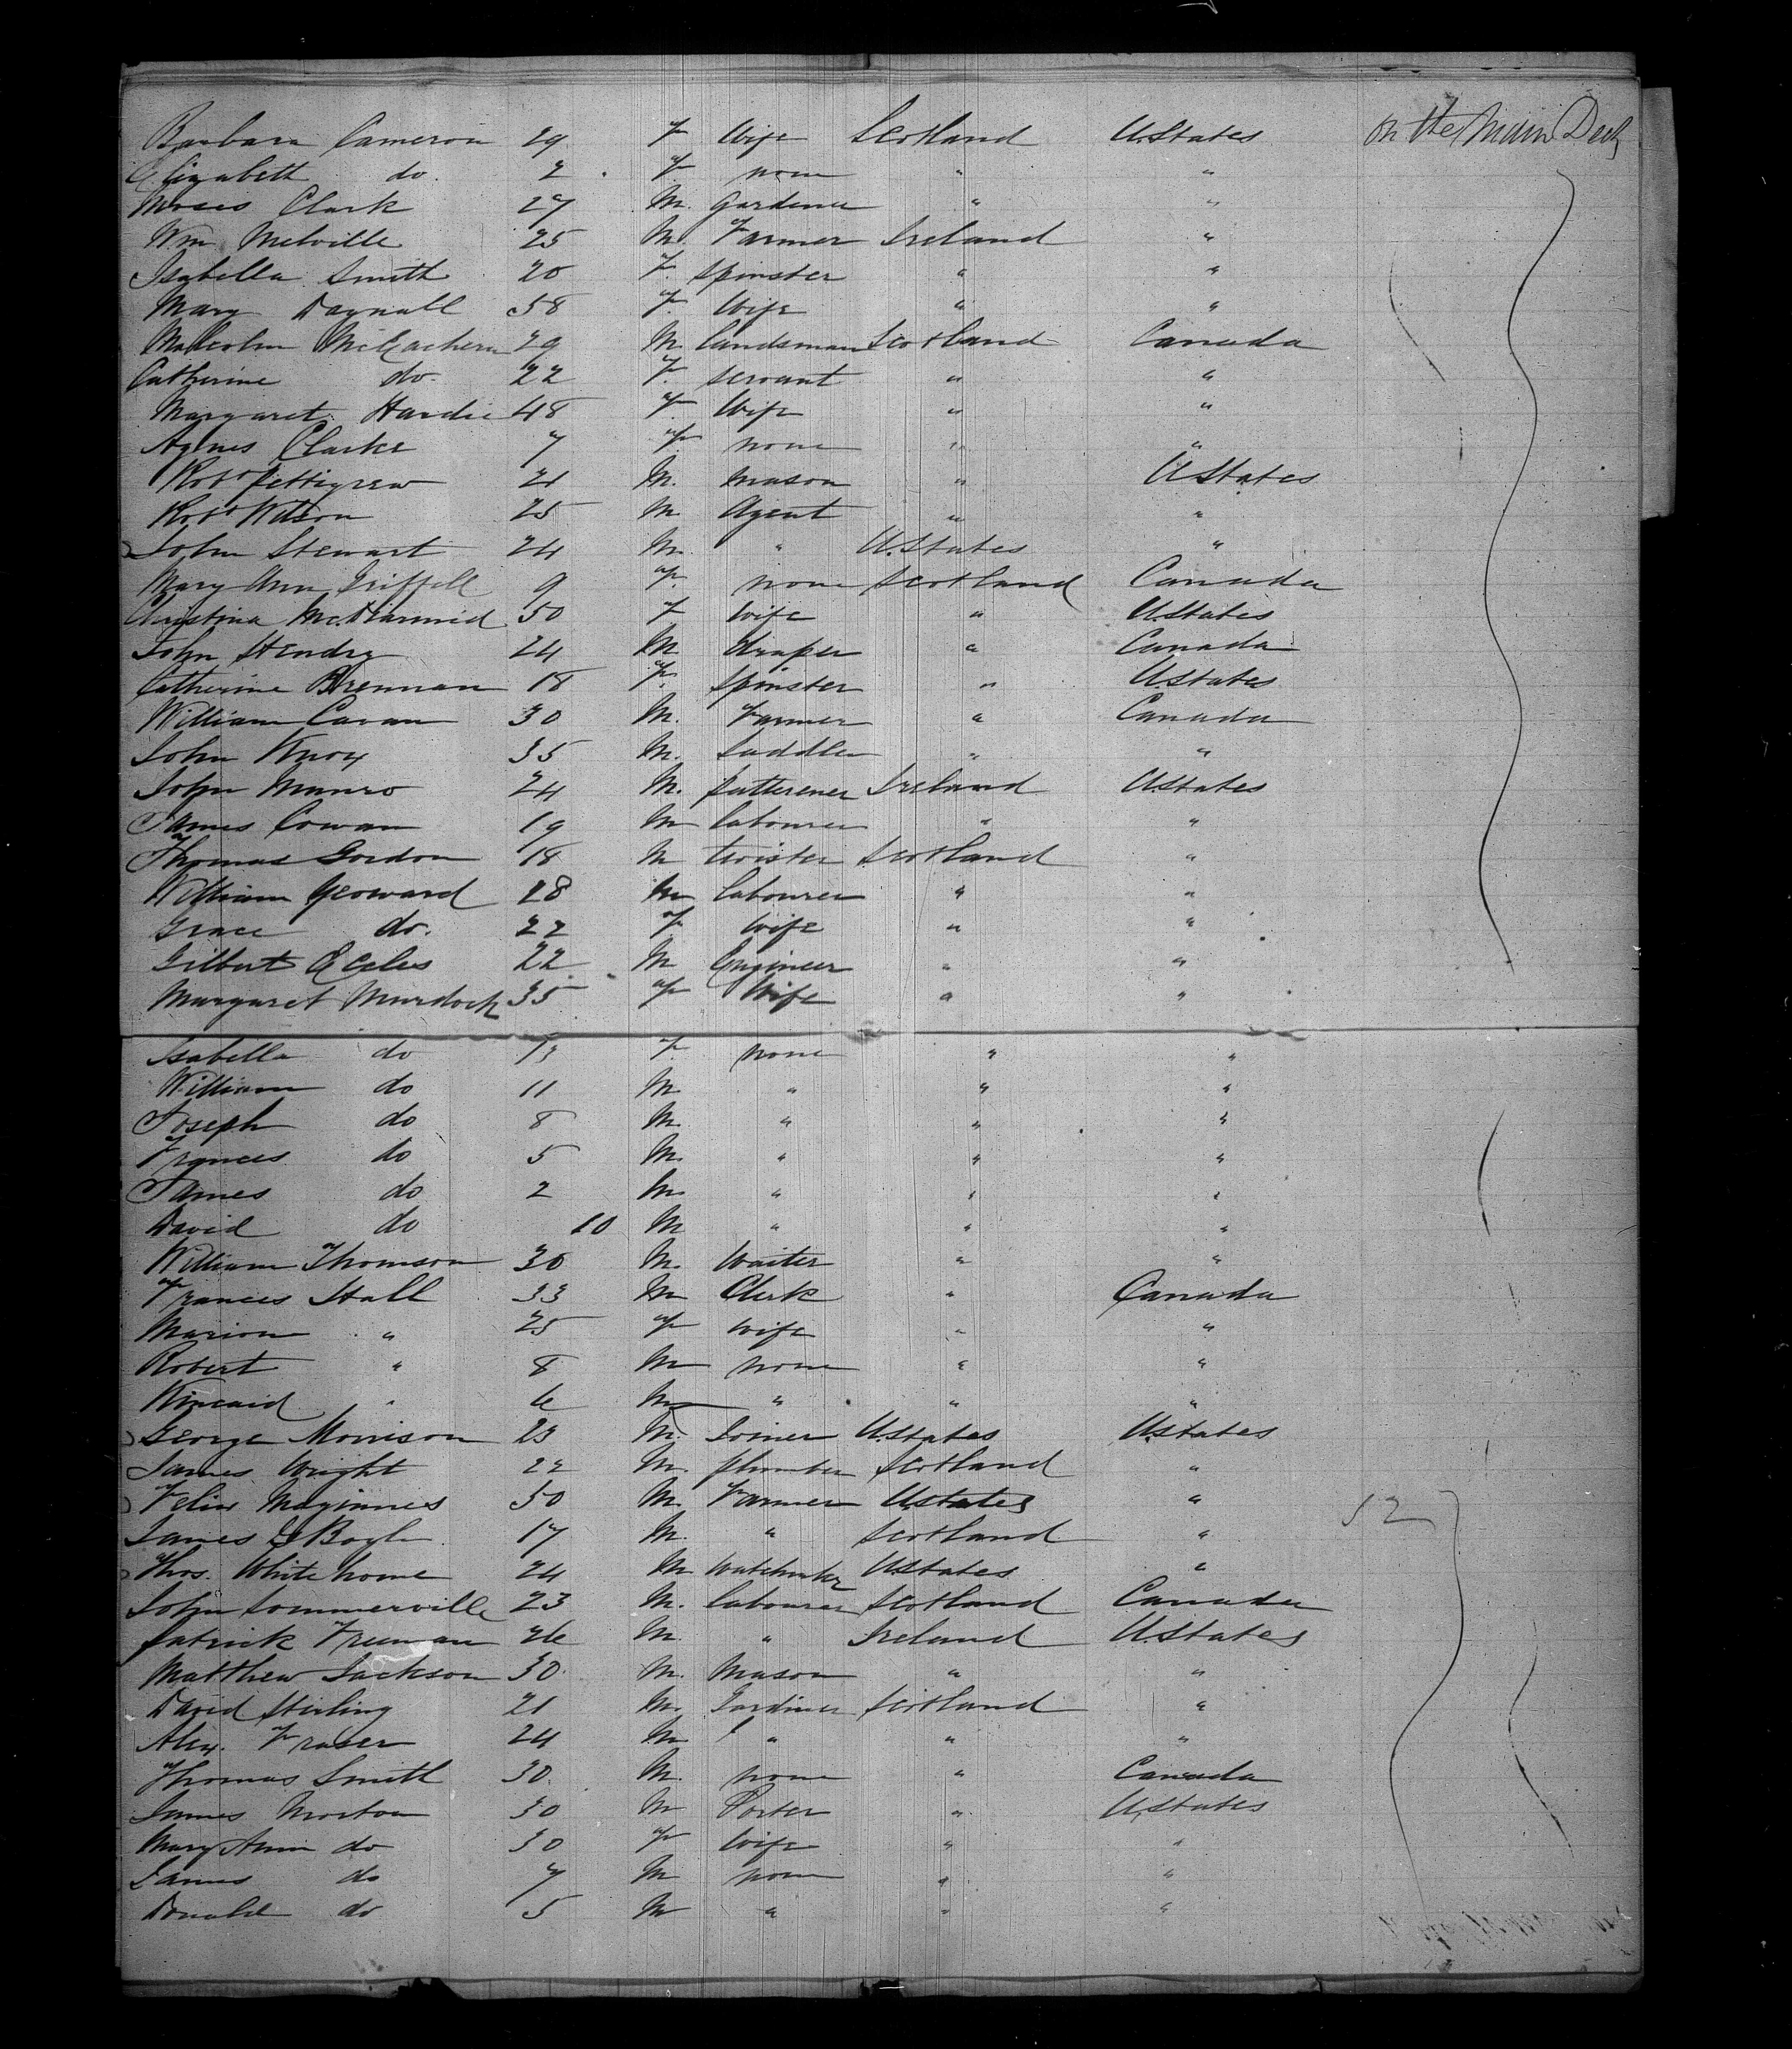 Barbara Cameron 29 F Wife Scotland U.States On the Main Deck
Elizabeth do. 2 F. none " "
Moses Clark 27 M. Gardener " "
Wm Melville 25 M. Farmer Ireland "
Isabella Smith 20 F. Spinster " "
Mary Dagnall 58 F. Wife " "
Malcolm McEachern 29 M. landsman Scotland Canada
Catherine do. 22 F. servant " "
Margaret Hardie 48 F. Wife " "
Agnes Clarke 7 F. none " "
Robt Pettigrew 21 M. mason " U States
Robt Wilson 25 M Agent " "
John Stewart 24 M. " U.States "
Mary Ann 9 F. none Scotland Canada
Christina McDiarmid 50 F Wife " U.States
John Hendry 24 M draper " Canada
Catherine Brennan 18 F. Spinster " U.States
William Cavan 30 M. Farmer " Canada
John Knox 35 M. Saddler " "
John Munro 24 M. Ireland U.States
James Cowan 19 M labourer " "
Thomas Gordon 18 M twister Scotland "
William 28 M labourer " "
Grace do. 22 F Wife " "
Gilbert Eccles 22 M Engineer " "
Margaret Murdock 35 F Wife " "
Isabella do F. none " "
William do 11 M. " " "
Joseph do 8 M. " " "
Frances do 5 M. " " "
James do 2 M. " " "
David do 10 M " " "
William Thomson 30 M. Waiter " "
Frances Hall 33 M Clerk " Canada
Marion " 25 F Wife " "
Robert " 8 M none " "
Kincaid " 6 M " " "
George Morrison 23 M. Joiner U.States U.States
James Wright 22 M. plumber Scotland "
Felix Maginnes 50 M. Farmer U.States " 52
James Boyle 17 M. " Scotland "
Thos. Whitehome 24 M watchmaker U.States "
John Sommerville 23 M. labourer Scotland Canada
Patrick Freeman 26 M. " Ireland U.States
Matthew Jackson 30. M. Mason " "
David Stirling 21 M. Gardiner Scotland "
Alex. Fraser 24 M " " "
Thomas Smith 30. M. none " Canada
James Morton 30 M Porter " U.States
Mary Ann do 30 F Wife " "
James do 7 M none " "
Donald do 5 M " " "